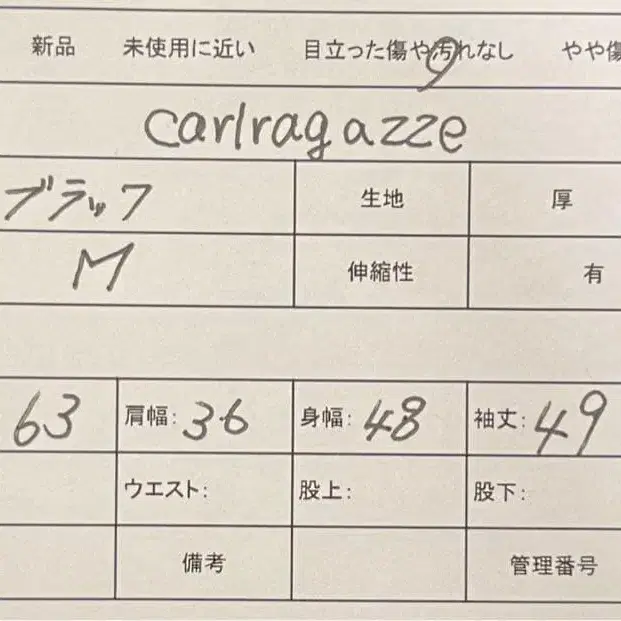 新品 未使用に近い 目立った傷や汚れなし やや傷
carlragazze
ブラック 生地 厚
M 伸縮性 有
63 肩幅: 36 身幅: 48 袖丈: 49
ウエスト: 股上: 股下:
備考 管理番号